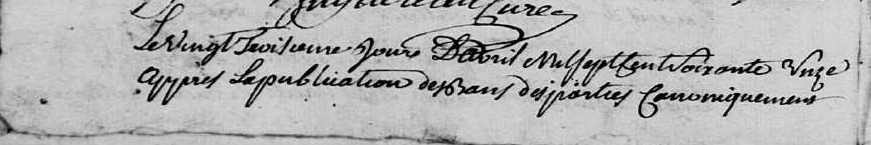 Curé
Le Vingt Troisieme Jour D'avril Mil sept Cent Soixante Unze
appres la publication des Bans des parties Canoniquement